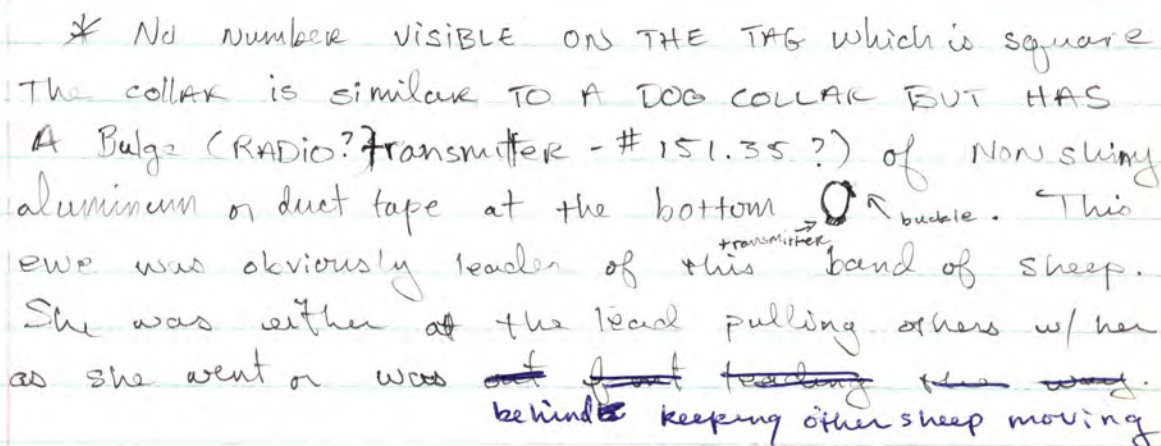 * No number VISIBLE ON THE TAG which is square
The collar is similar TO A DOG COLLAR BUT HAS
A Bulge (RADIO? transmitter - # 151.35 ?) of Non shiny
aluminum or duct tape at the bottom buckle. This
transmitter
ewe was obviously leader of this band of sheep.
She was either at the lead pulling others w/ her
as she went or was out front leading the way.
behind keeping other sheep moving